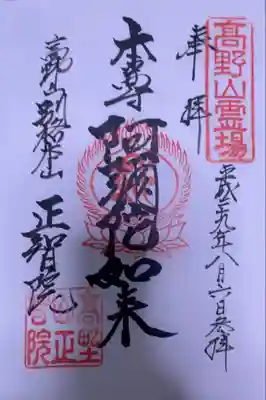 奉拝
高野山霊場
平成二十九年八月六日参拝
本尊 阿弥陀如来
高野山別格本山 正智院
高野山正智院